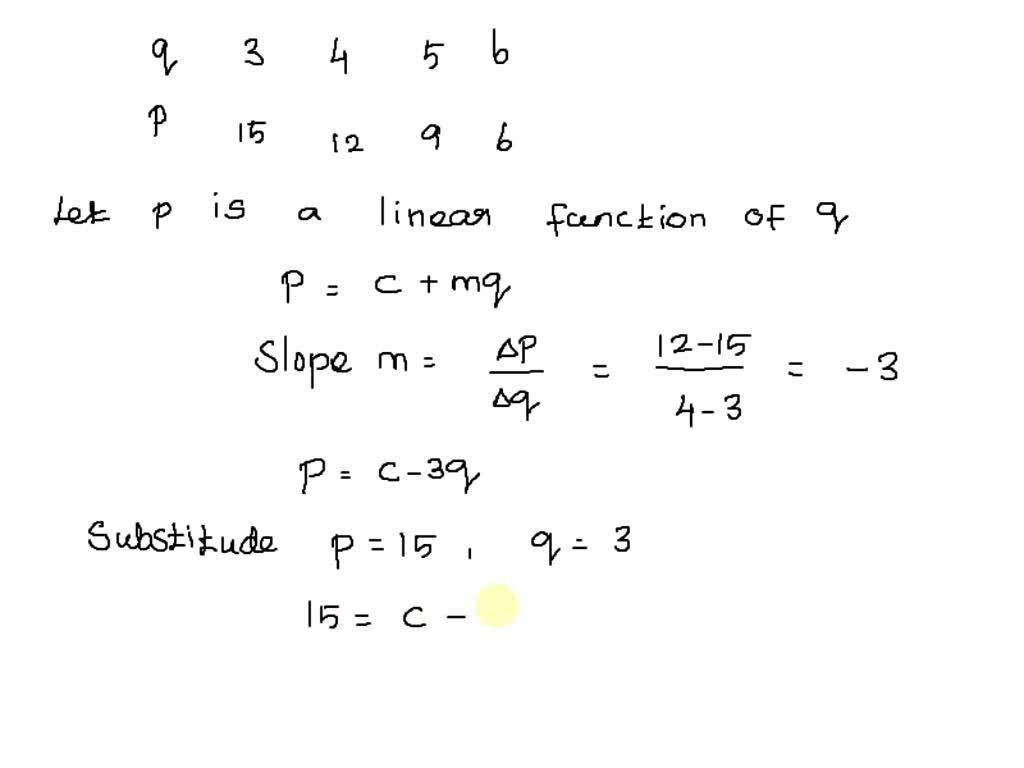 q 3 4 5 6
P 15 12 9 6
Let p is a linear function of q
P = c + mq
Slope m = ΔP/Δq = 12-15/4-3 = -3
P = c - 3q
Substitude p = 15, q = 3
15 = c -